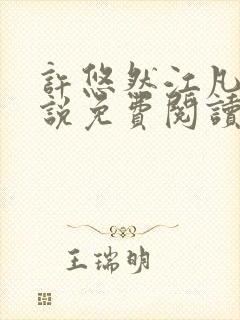 許悠然江凡
説免費閱讀
王瑞明